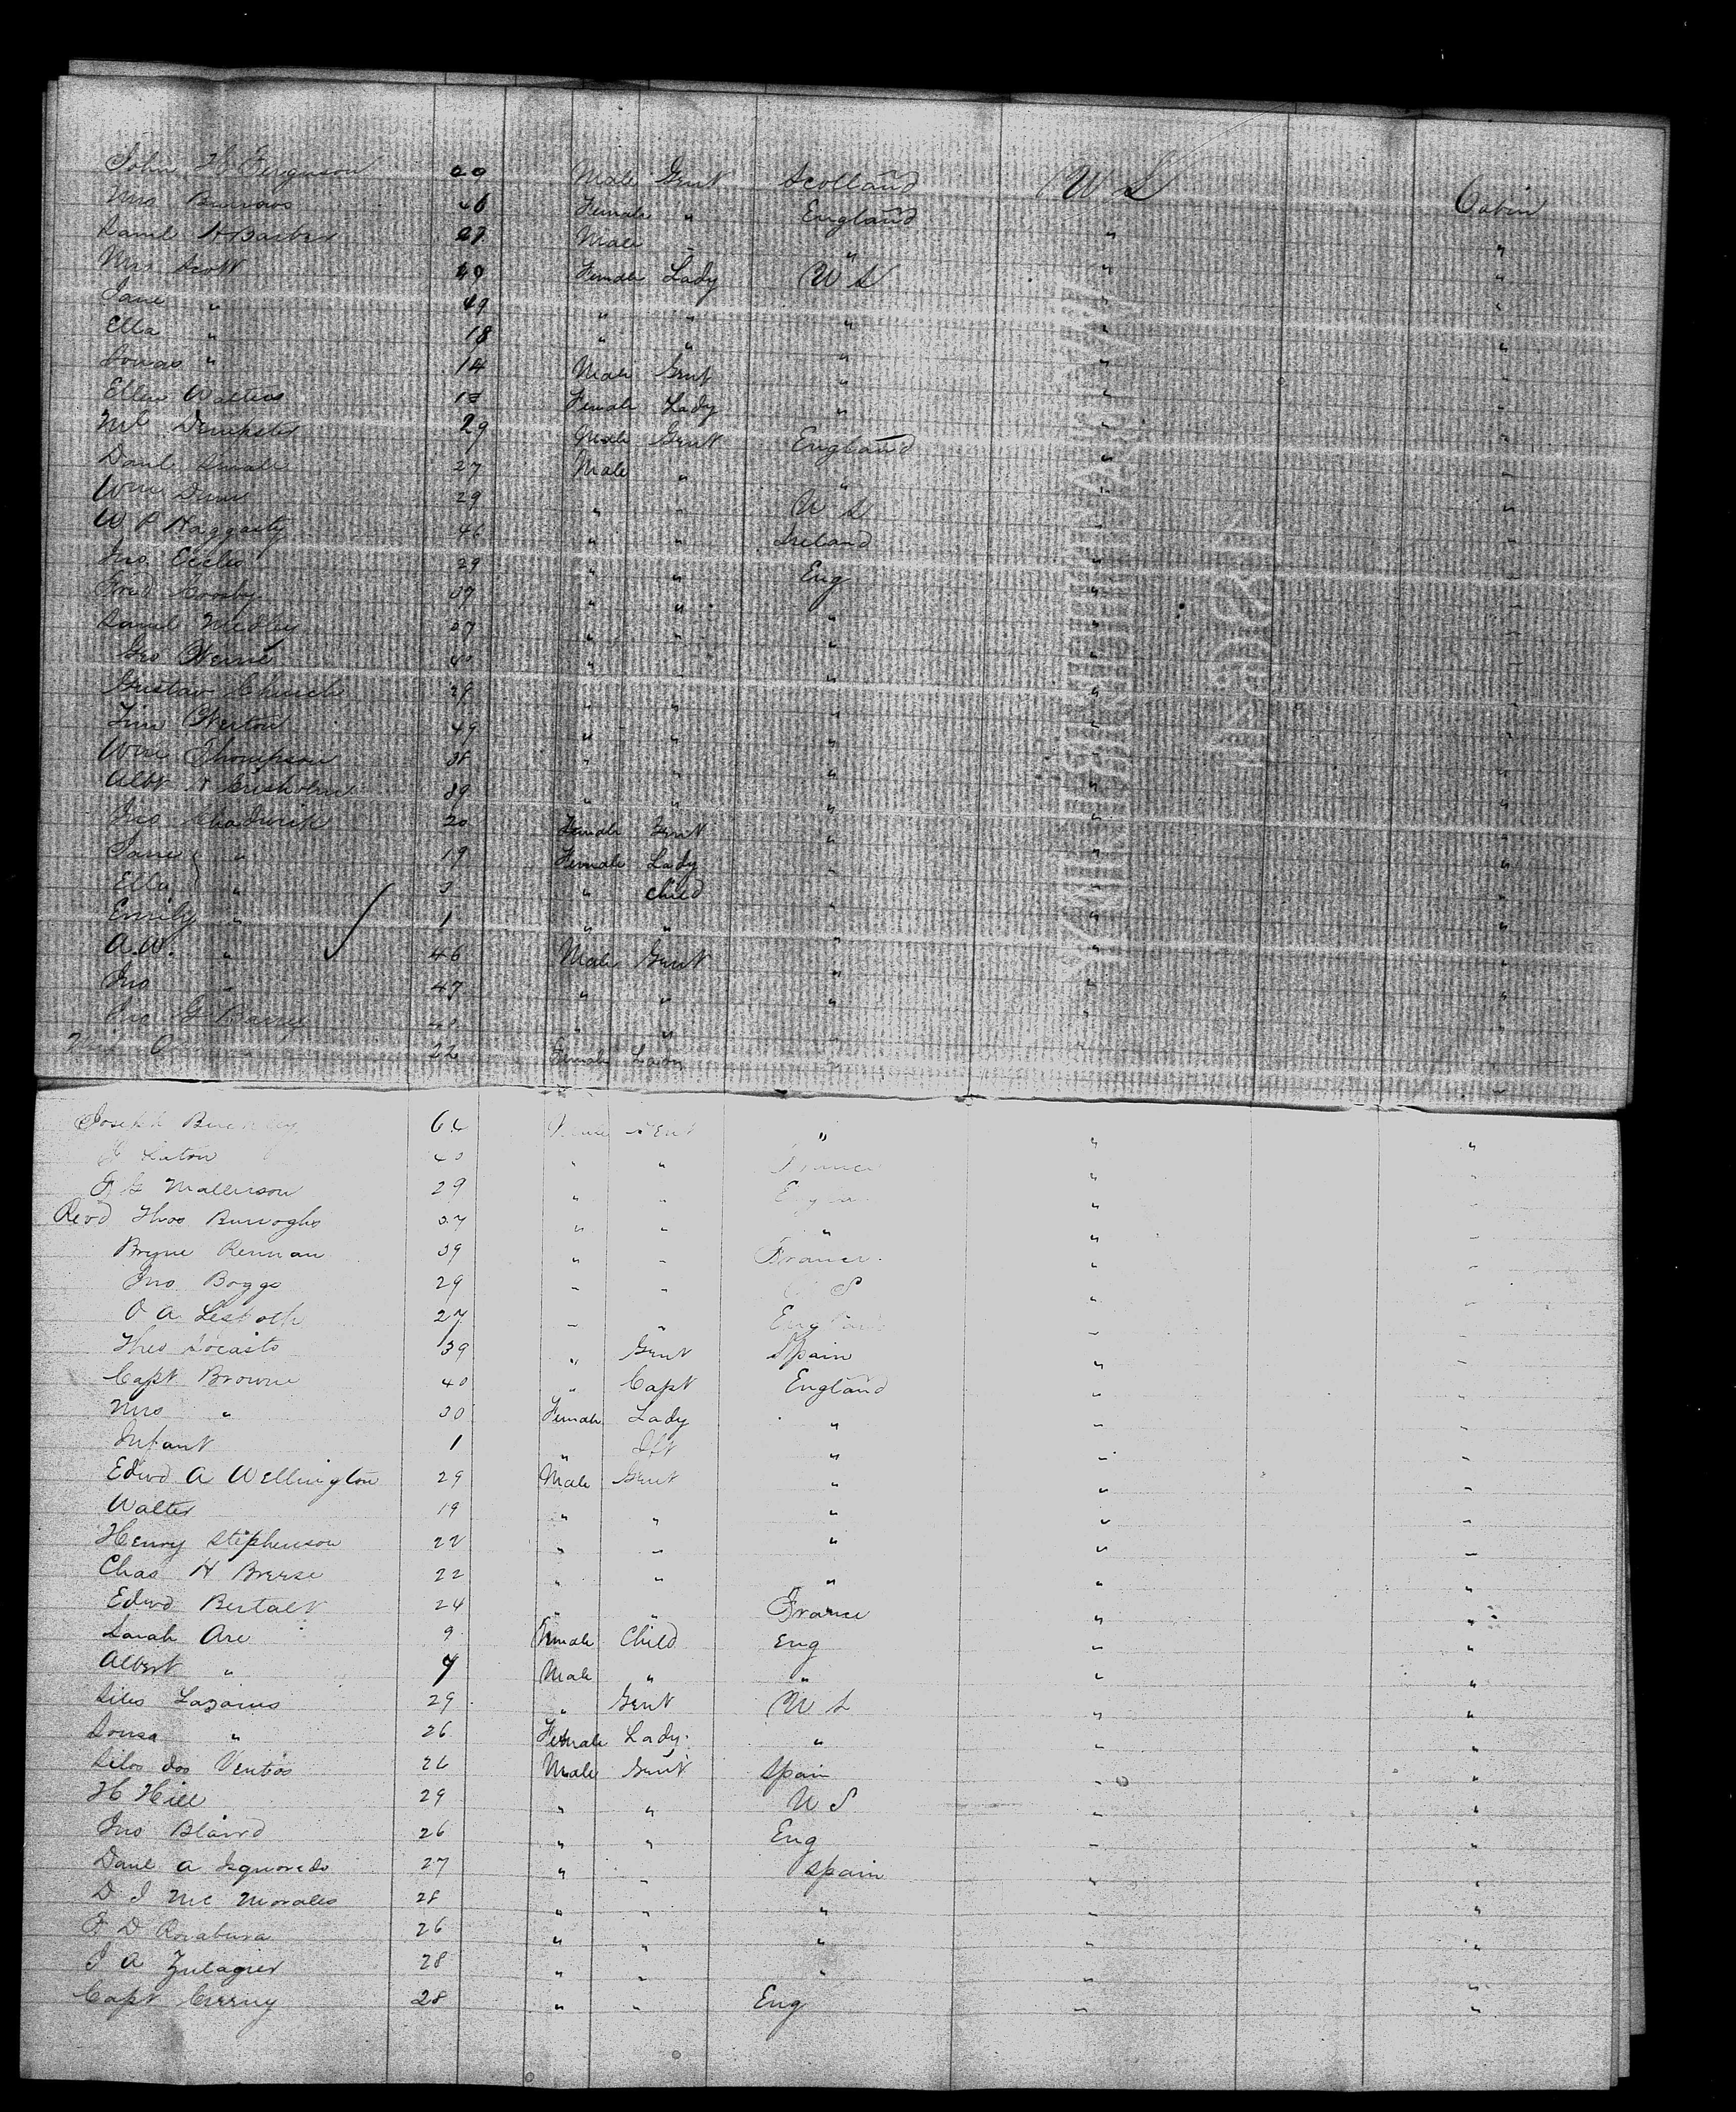 John H Ferguson 20 Male Gent Scotland U S Cabin
Mrs Burrows 46 Female " England " "
Saml H Barber 27 Male " " " "
Mrs Scott 49 Female Lady U S " "
Jane " 49 " " " " "
Ella " 18 " " " " "
" 14 Male Gent " " "
Ellen Walters Female Lady " " "
Mc Dempster 29 Male Gent England " "
Danl Small 27 Male " " " "
Wm Dunn 29 " " U S " "
W P Haggarty 46 " " Ireland " "
Jno Eccles 29 " " Eng " "
Fred Crosby 37 " " " " "
Saml Medley 27 " " " " "
Geo 40 " " " " "
Gustav Church 29 " " " " "
Jim 49 " " " " "
Wm Thompson 38 " " " " "
Albt H Chisholm 39 " " " " "
Jno Chadwick 20 Female Gent " " "
Jane " 19 Female Lady " " "
Ella " 3 " Child " " "
Emily " 1 " " " " "
A.W. " 46 Male Gent " " "
Jno " 47 " " " " "
Jno G Barry 40 " " " " "
22 Female Lady " " "
Joseph 64 Male Gent " " "
J 40 " " France " "
F G Mallinson 29 " " " "
Revd Thos Burroghs 37 " " " " "
Bryne Rennan 39 " " France " "
Jno Boggs 29 " " S " "
O A 27 " " England " "
Theo Locasto 39 " Gent Spain " "
Capt Browne 40 " Capt England " "
Mrs " 30 Female Lady " " "
Infant 1 " Ift " " "
Edwd A Wellington 29 Male Gent " " "
Walter 19 " " " " "
Henry Stephenson 22 " " " " "
Chas H Breese 22 " " " " "
Edwd Bertalt 24 " " France " "
Sarah Are 9 Female Child Eng " "
Albert " 7 Male " " " "
Silas Lazarus 29 " Gent U S " "
Sousa " 26 Female Lady " " "
Silos dos Ventos 26 Male Gent Spain " "
H Hill 29 " " U S " "
Jno Blaird 26 " " Eng " "
Danl A Izquoredo 27 " " Spain " "
D J Mc Morales 28 " " " " "
F D 26 " " " " "
J A Zulagier 28 " " " " "
Capt 28 " " Eng " "